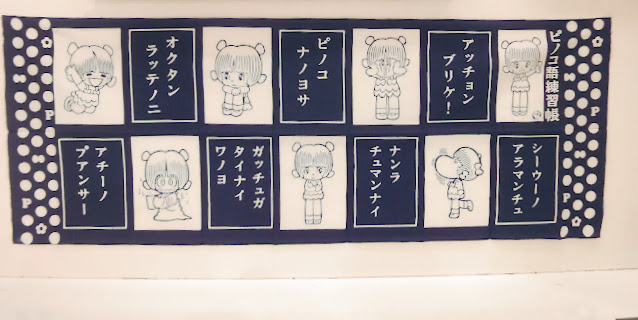 ピノコ語練習帳
アッチョン
ブリケ!
ピノコ
ナノヨサ
オクタン
ラッテノニ
シーウーノ
アラマンチュ
ナンラ
チュマンナイ
ガッチュガ
タイナイ
ワノヨ
アチーノ
プアンサー
P
P
P
P